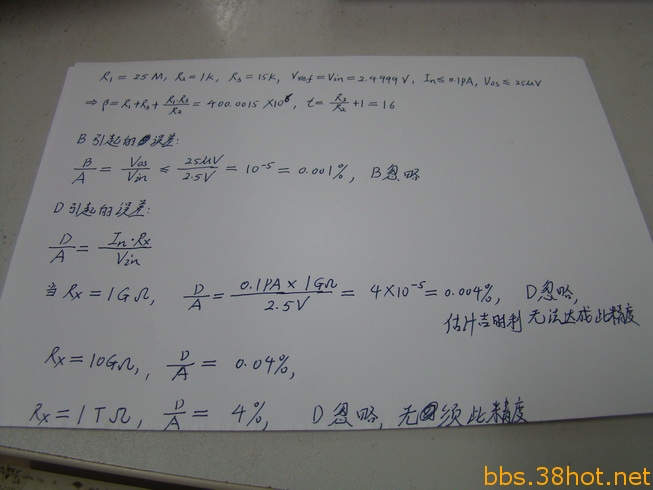 R₁ = 25M, R₂ = 1K, R₃ = 15K, Vref = Vin = 2.4999V, In ≤ 0.1PA, Vos ≤ 25μV
⇒ β = R₁ + R₃ + R₁R₃/R₂ = 400.0015 × 10⁶, t = R₃/R₂ + 1 = 16
B引起的误差:
B/A = Vos/Vin ≤ 25μV/2.5V = 10⁻⁵ = 0.001%, B忽略
D引起的误差:
D/A = In·Rx/Vin
当 Rx = 1GΩ, D/A = 0.1PA × 1GΩ/2.5V = 4×10⁻⁵ = 0.004%, D忽略,
估计吉时利 无法达成此精度
Rx = 10GΩ, D/A = 0.04%,
Rx = 1TΩ, D/A = 4%, D忽略, 无须此精度
bbs.38hot.net